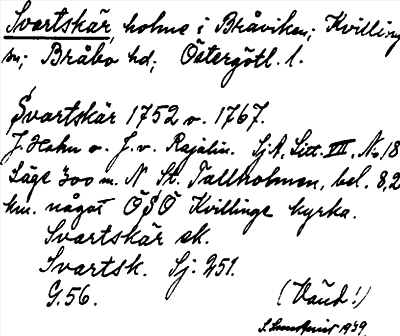 Svartskär, holme i Bråviken; Kvillinge
sn; Bråbo hd; Östergötl. l.
Svartskär 1752 o. 1767.
J. Hahn o. J. v. Rajalin. SjA. Litt. VII, No 18
Läge 300 m. N St. Tallholmen, bel. 8,2
km. något ÖSÖ Kvillinge kyrka.
Svartskär ek.
Svartsk. Sj: 251.
G. 56. (Vänd!)
S. Lundquist 1939.